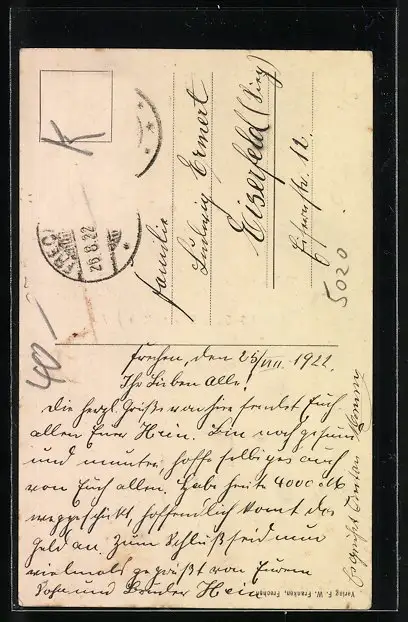 K
FREC
26.8.22
Familie
Ludwig Ermert
Eiserfeld (Sieg)
str. 12.
5020
40 –
Frechen, den 25/VIII. 1922.
Ihr Lieben Alle!
Die herzl. Grüße von hier sendet Euch
allen Euer Hein. Bin noch gesund
und munter, hoffe selbiges auch
von Euch allen. Habe heute 4000 M
weggeschikt, hoffendlich komt das
Geld an. Zum Schluß seid nun
vielmals gegrüßt von Eurem
Sohn und Bruder Hein
Es grüßt Tantan
Verlag F. W. Franken, Frechen